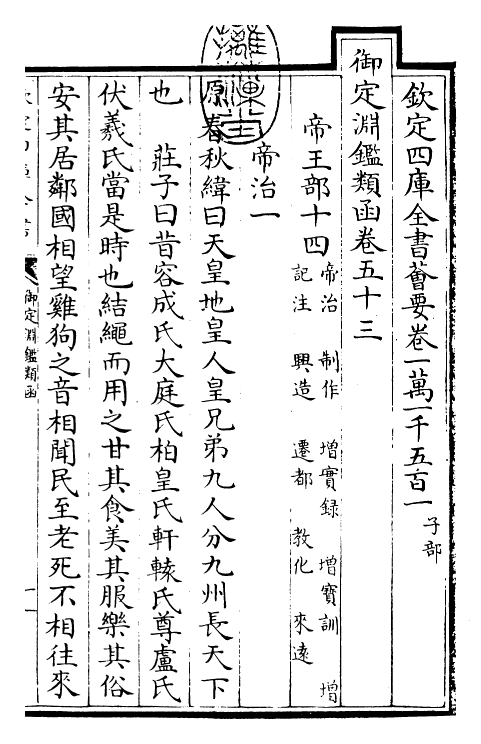 欽定四庫全書薈要卷一萬一千五百一子部
御定淵鑑類函卷五十三
帝王部十四帝治 制作 增實録 增寶訓 增
記注 興造 遷都 教化 來遠
帝治一
原春秋緯曰天皇地皇人皇兄弟九人分九州長天下
也 莊子曰昔容成氏大庭氏柏皇氏軒轅氏尊盧氏
伏羲氏當是時也結繩而用之甘其食美其服樂其俗
安其居鄰國相望雞狗之音相聞民至老死不相往來
御定淵鑑類函